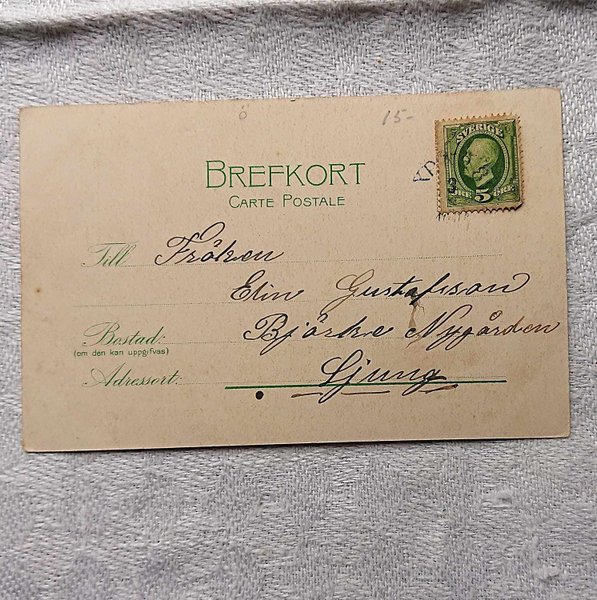 15-
BREFKORT
CARTE POSTALE
SVERIGE
5
Till Fröken
Elin Gustafsson
Bostad: Björke Nygården
(om den kan uppgifvas)
Adressort: Ljung